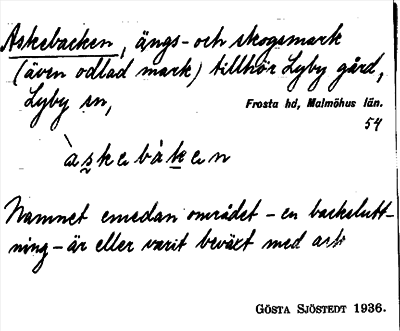 Askebacken, ängs- och skogsmark
(även odlad mark) tillhör Lyby gård,
Lyby sn,
Frosta hd, Malmöhus län.
54
àskebàken
Namnet emedan området - en backslutt-
ning - är eller varit beväxt med ask
GÖSTA SJÖSTEDT 1936.